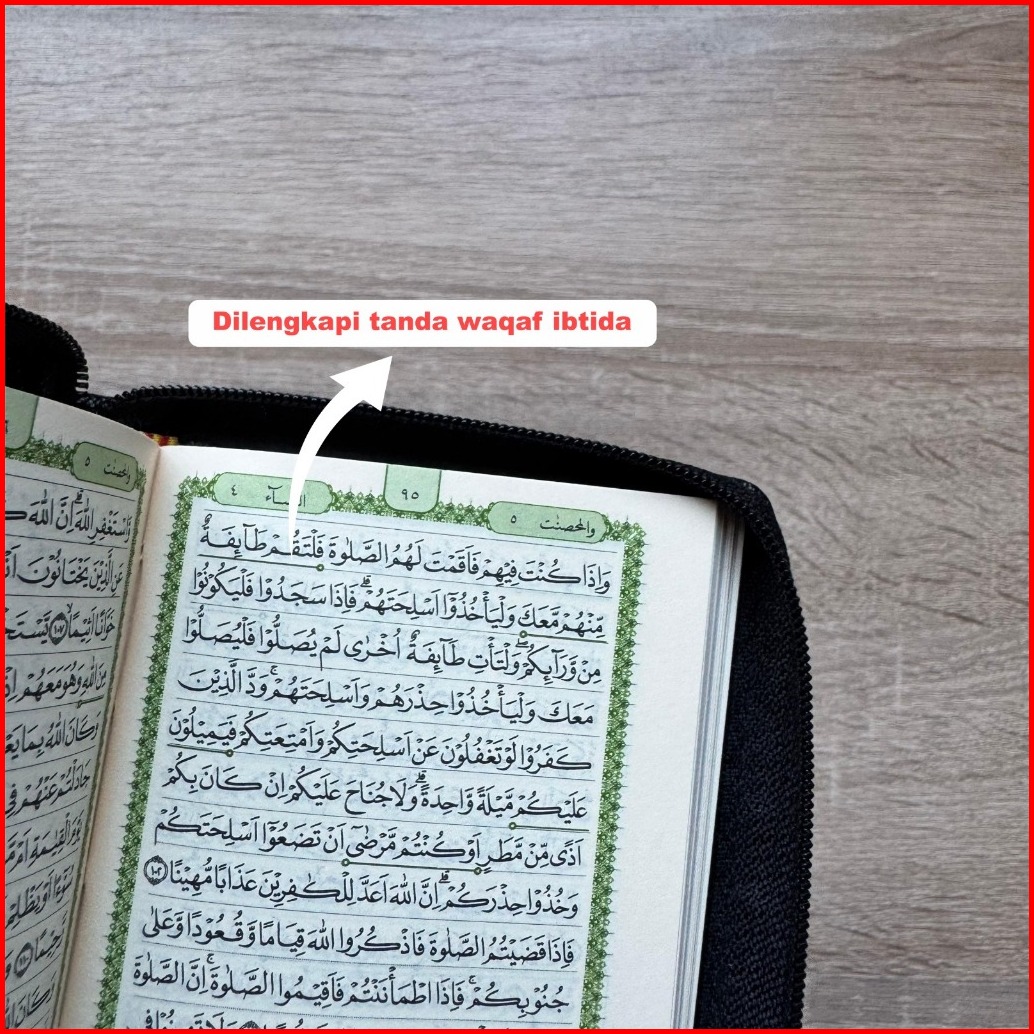 Dilengkapi tanda waqaf ibtida
والمحصنت ٥
٩٥
النسآء ٤
وَاِذَا كُنْتَ فِيْهِمْ فَاَقَمْتَ لَهُمُ الصَّلٰوةَ فَلْتَقُمْ طَاۤىِٕفَةٌ
مِّنْهُمْ مَّعَكَ وَلْيَأْخُذُوْٓا اَسْلِحَتَهُمْ ۗ فَاِذَا سَجَدُوْا فَلْيَكُوْنُوْا
مِنْ وَّرَاۤىِٕكُمْ ۖ وَلْتَأْتِ طَاۤىِٕفَةٌ اُخْرٰى لَمْ يُصَلُّوْا فَلْيُصَلُّوْا
مَعَكَ وَلْيَأْخُذُوْا حِذْرَهُمْ وَاَسْلِحَتَهُمْ ۚ وَدَّ الَّذِيْنَ
كَفَرُوْا لَوْ تَغْفُلُوْنَ عَنْ اَسْلِحَتِكُمْ وَاَمْتِعَتِكُمْ فَيَمِيْلُوْنَ
عَلَيْكُمْ مَّيْلَةً وَّاحِدَةً ۗ وَلَا جُنَاحَ عَلَيْكُمْ اِنْ كَانَ بِكُمْ
اَذًى مِّنْ مَّطَرٍ اَوْ كُنْتُمْ مَّرْضٰٓى اَنْ تَضَعُوْٓا اَسْلِحَتَكُمْ
وَخُذُوْا حِذْرَكُمْ ۗ اِنَّ اللّٰهَ اَعَدَّ لِلْكٰفِرِيْنَ عَذَابًا مُّهِيْنًا ١٠٢
فَاِذَا قَضَيْتُمُ الصَّلٰوةَ فَاذْكُرُوا اللّٰهَ قِيَامًا وَّقُعُوْدًا وَّعَلٰى
جُنُوْبِكُمْ ۚ فَاِذَا اطْمَأْنَنْتُمْ فَاَقِيْمُوا الصَّلٰوةَ ۚ اِنَّ الصَّلٰوةَ
والمحصنت ٥
وَّاسْتَغْفِرِ اللّٰهَ ۗ اِنَّ اللّٰهَ
عَنِ الَّذِيْنَ يَخْتَانُوْنَ
خَوَّانًا اَثِيْمًا ١٠٧ يَّسْتَ
مِنَ اللّٰهِ وَهُوَ مَعَهُمْ اِذْ
وَكَانَ اللّٰهُ بِمَا يَعْ
جَادَلْتُمْ عَنْهُمْ فِى
يَوْمَ الْقِيٰمَةِ اَمْ مَّ
سُوْۤءًا اَوْ يَظْلِمْ
رَّحِيْمًا ١١٠